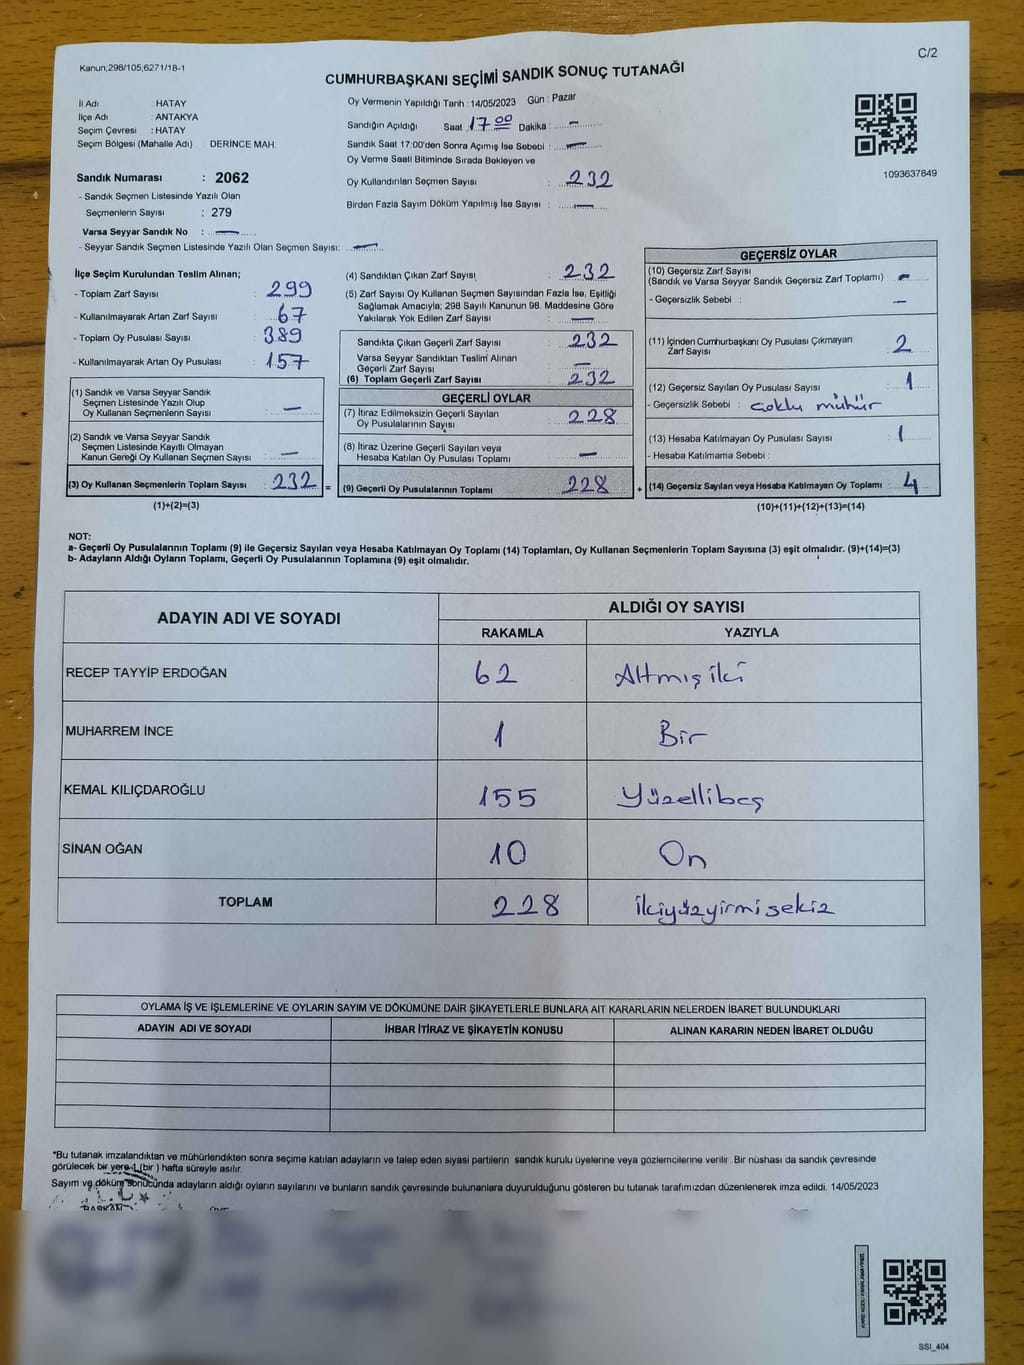 C/2
Kanun,298/105,6271/18-1
CUMHURBAŞKANI SEÇİMİ SANDIK SONUÇ TUTANAĞI
İl Adı : HATAY
İlçe Adı : ANTAKYA
Seçim Çevresi : HATAY
Seçim Bölgesi (Mahalle Adı) : DERİNCE MAH.
Sandık Numarası : 2062
- Sandık Seçmen Listesinde Yazılı Olan
Seçmenlerin Sayısı : 279
Varsa Seyyar Sandık No : —
- Seyyar Sandık Seçmen Listesinde Yazılı Olan Seçmen Sayısı: —
Oy Vermenin Yapıldığı Tarih : 14/05/2023 Gün : Pazar
Sandığın Açıldığı Saat 17 00 Dakika : —
Sandık Saat 17:00'den Sonra Açımış İse Sebebi : —
Oy Verme Saati Bitiminde Sırada Bekleyen ve
Oy Kullandırılan Seçmen Sayısı : 232
Birden Fazla Sayım Döküm Yapılmış İse Sayısı : —
1093637849
İlçe Seçim Kurulundan Teslim Alınan;
- Toplam Zarf Sayısı : 299
- Kullanılmayarak Artan Zarf Sayısı : 67
- Toplam Oy Pusulası Sayısı : 389
- Kullanılmayarak Artan Oy Pusulası : 157
(1) Sandık ve Varsa Seyyar Sandık
Seçmen Listesinde Yazılı Olup
Oy Kullanan Seçmenlerin Sayısı : —
(2) Sandık ve Varsa Seyyar Sandık
Seçmen Listesinde Kayıtlı Olmayan
Kanun Gereği Oy Kullanan Seçmen Sayısı : —
(3) Oy Kullanan Seçmenlerin Toplam Sayısı : 232 =
(1)+(2)=(3)
(4) Sandıktan Çıkan Zarf Sayısı : 232
(5) Zarf Sayısı Oy Kullanan Seçmen Sayısından Fazla İse, Eşitliği
Sağlamak Amacıyla; 298 Sayılı Kanunun 98. Maddesine Göre
Yakılarak Yok Edilen Zarf Sayısı : —
Sandıkta Çıkan Geçerli Zarf Sayısı : 232
Varsa Seyyar Sandıktan Teslim Alınan
Geçerli Zarf Sayısı : —
(6) Toplam Geçerli Zarf Sayısı : 232
GEÇERLİ OYLAR
(7) İtiraz Edilmeksizin Geçerli Sayılan
Oy Pusulalarının Sayısı : 228
(8) İtiraz Üzerine Geçerli Sayılan veya
Hesaba Katılan Oy Pusulası Toplamı : —
(9) Geçerli Oy Pusulalarının Toplamı : 228 +
GEÇERSİZ OYLAR
(10) Geçersiz Zarf Sayısı
(Sandık ve Varsa Seyyar Sandık Geçersiz Zarf Toplamı) : —
- Geçersizlik Sebebi : —
(11) İçinden Cumhurbaşkanı Oy Pusulası Çıkmayan
Zarf Sayısı : 2
(12) Geçersiz Sayılan Oy Pusulası Sayısı : 1
- Geçersizlik Sebebi : çoklu mühür
(13) Hesaba Katılmayan Oy Pusulası Sayısı : 1
- Hesaba Katılmama Sebebi :
(14) Geçersiz Sayılan veya Hesaba Katılmayan Oy Toplamı : 4
(10)+(11)+(12)+(13)=(14)
NOT:
a- Geçerli Oy Pusulalarının Toplamı (9) ile Geçersiz Sayılan veya Hesaba Katılmayan Oy Toplamı (14) Toplamları, Oy Kullanan Seçmenlerin Toplam Sayısına (3) eşit olmalıdır. (9)+(14)=(3)
b- Adayların Aldığı Oyların Toplamı, Geçerli Oy Pusulalarının Toplamına (9) eşit olmalıdır.
ADAYIN ADI VE SOYADI ALDIĞI OY SAYISI
RAKAMLA YAZIYLA
RECEP TAYYİP ERDOĞAN 62 Altmış iki
MUHARREM İNCE 1 Bir
KEMAL KILIÇDAROĞLU 155 Yüzellibeş
SİNAN OĞAN 10 On
TOPLAM 228 ikiyüzyirmisekiz
OYLAMA İŞ VE İŞLEMLERİNE VE OYLARIN SAYIM VE DÖKÜMÜNE DAİR ŞİKAYETLERLE BUNLARA AİT KARARLARIN NELERDEN İBARET BULUNDUKLARI
ADAYIN ADI VE SOYADI İHBAR İTİRAZ VE ŞİKAYETİN KONUSU ALINAN KARARIN NEDEN İBARET OLDUĞU
*Bu tutanak imzalandıktan ve mühürlendikten sonra seçime katılan adayların ve talep eden siyasi partilerin sandık kurulu üyelerine veya gözlemcilerine verilir. Bir nüshası da sandık çevresinde
görülecek bir yere 1 (bir ) hafta süreyle asılır.
Sayım ve döküm sonucunda adayların aldığı oyların sayılarını ve bunların sandık çevresinde bulunanlara duyurulduğunu gösteren bu tutanak tarafımızdan düzenlenerek imza edildi. 14/05/2023
BAŞKAN
SSI_404